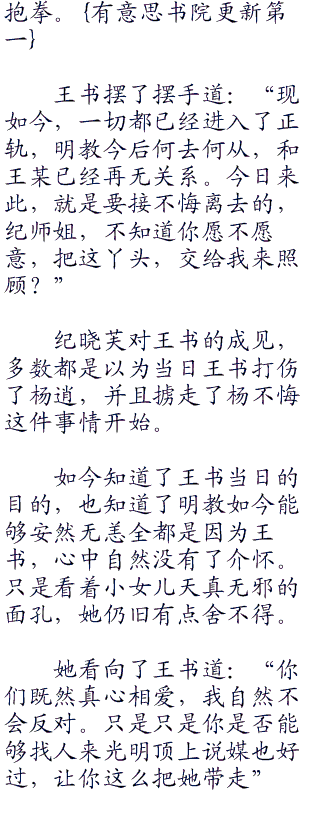 抱拳。{有意思书院更新第
一}
王书摆了摆手道：“现
如今，一切都已经进入了正
轨，明教今后何去何从，和
王某已经再无关系。今日来
此，就是要接不悔离去的，
纪师姐，不知道你愿不愿
意，把这丫头，交给我来照
顾？”
纪晓芙对王书的成见，
多数都是以为当日王书打伤
了杨逍，并且掳走了杨不悔
这件事情开始。
如今知道了王书当日的
目的，也知道了明教如今能
够安然无恙全都是因为王
书，心中自然没有了介怀。
只是看着小女儿天真无邪的
面孔，她仍旧有点舍不得。
她看向了王书道：“你
们既然真心相爱，我自然不
会反对。只是只是你是否能
够找人来光明顶上说媒也好
过，让你这么把她带走”